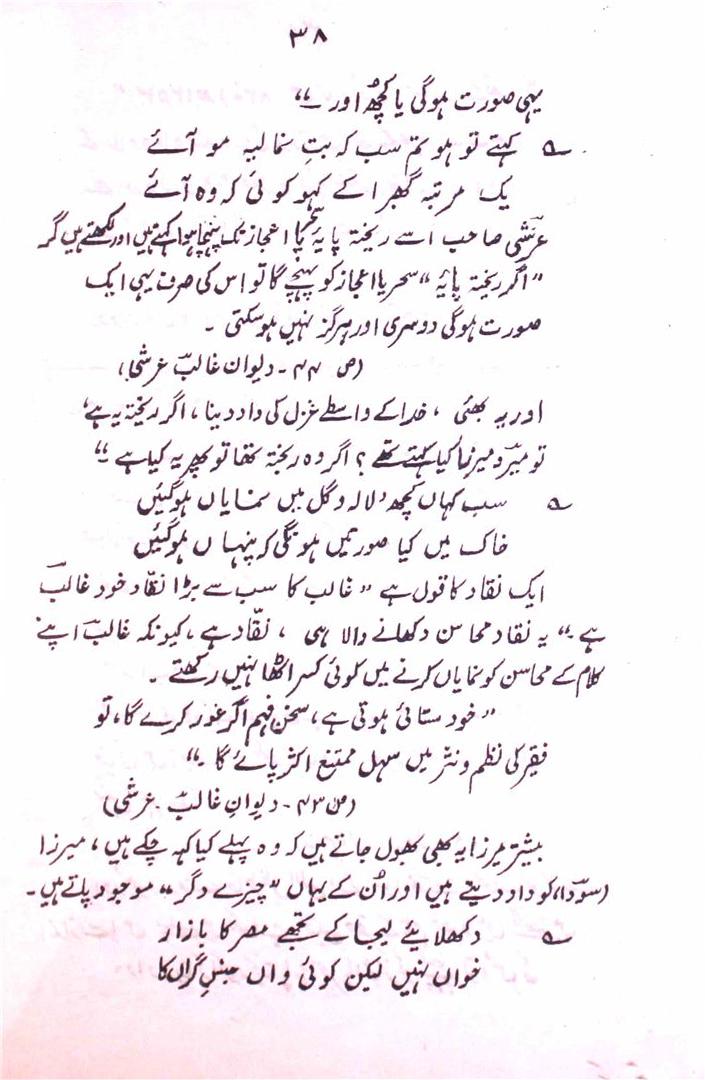 ۳۸
یہی صورت ہوگی یا کچھ اور ۔"
کہتے تو ہو تم سب کہ بتِ غالیہ مو آئے
یک مرتبہ گھبرا کے کہو کوئی کہ وہ آئے
عرشی صاحب اسے ریختہ پایۂ سحر یا اعجاز تک پہنچا ہوا کہتے ہیں اور لکھتے ہیں گر
"اگر ریختہ پایۂ" سحر یا اعجاز کو پہنچے گا تو اس کی صرف یہی ایک
صورت ہوگی دوسری اور ہرگز نہیں ہوسکتی ۔
(ص ۴۴ ۔ دیوان غالبؔ عرشی)
اور یہ بھئی ، خدا کے واسطے غزل کی داد دینا ، اگر ریختہ یہ ہے'
تو میرؔ و میرزا کیا کہتے تھے ؟ اگر وہ ریختہ تھا تو پھر یہ کیا ہے ۔"
سب کہاں کچھ لالہ و گل میں نمایاں ہوگئیں
خاک میں کیا صورتیں ہونگی کہ پنہاں ہوگئیں
ایک نقاد کا قول ہے "غالب کا سب سے بڑا نقّاد خود غالبؔ
ہے ۔" یہ نقاد محاسن دکھانے والا ہی ، نقّاد ہے ، کیونکہ غالبؔ اپنے
کلام کے محاسن کو نمایاں کرنے میں کوئی کسر اٹھا نہیں رکھتے ۔
"خودستائی ہوتی ہے ، سخن فہم اگر غور کرے گا ، تو
فقیر کی نظم و نثر میں سہل ممتنع اکثر پائے گا ۔"
(ص ۴۳ ۔ دیوانِ غالبؔ ۔ عرشی)
بیشتر میرزا یہ بھی بھول جاتے ہیں کہ وہ پہلے کیا کہہ چکے ہیں ، میرزا
(سوداؔ) کو داد دیتے ہیں اور اُن کے یہاں "چیزے دگر" موجود پاتے ہیں ۔
دکھلایئے لیجا کے تجھے مصر کا بازار
خواں نہیں لیکن کوئی واں جنسِ گراں کا